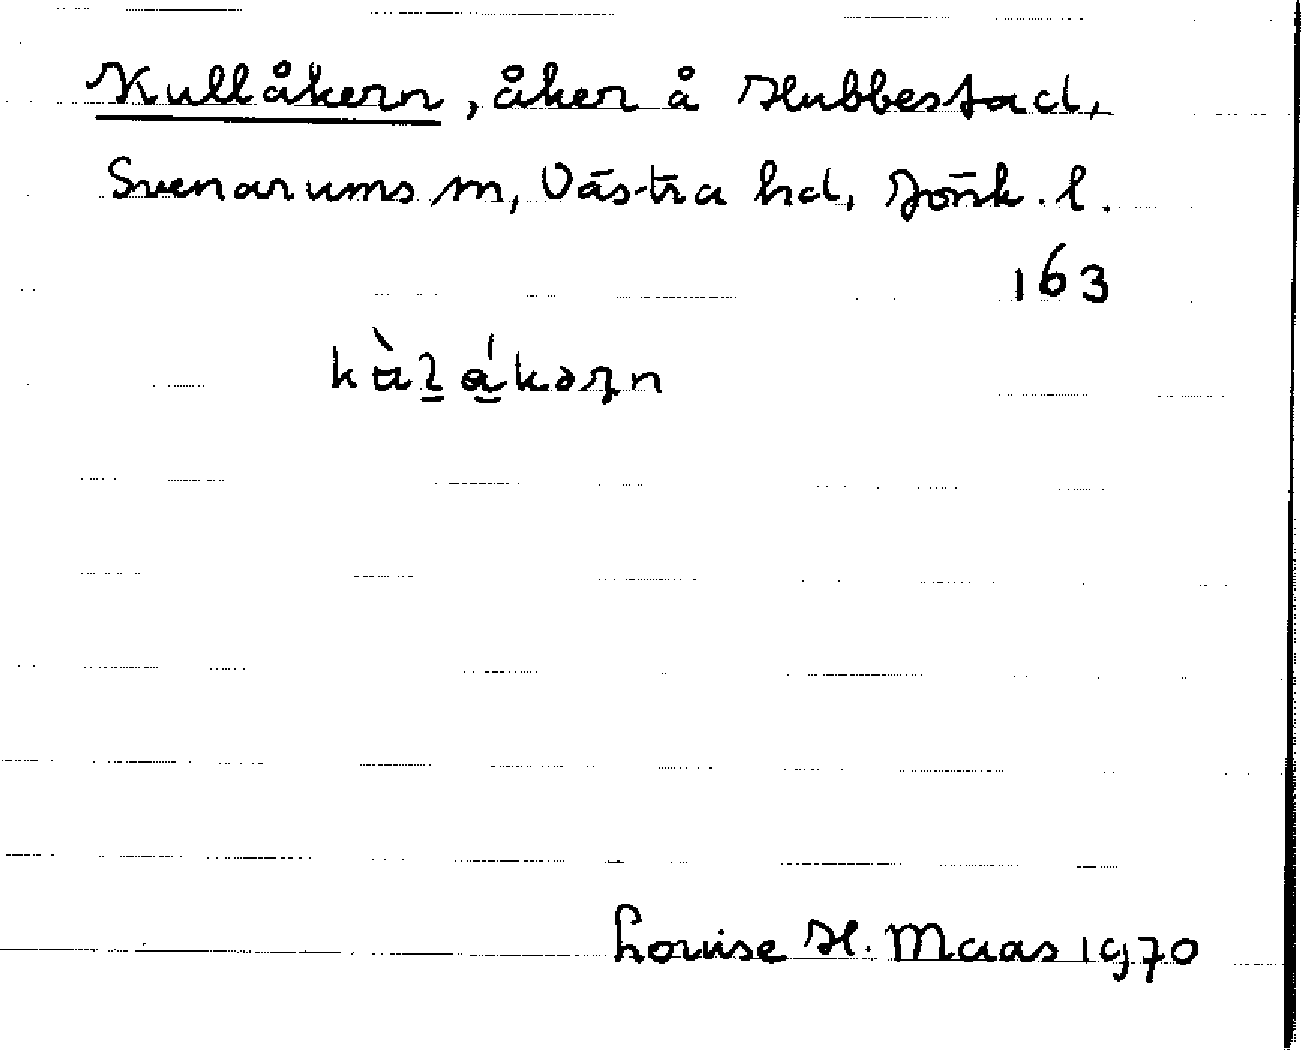 Kullåkern, åker å Hubbestad,
Svenarums sn, Västra hd, Jönk. l.
163
Louise H. Maas 1970